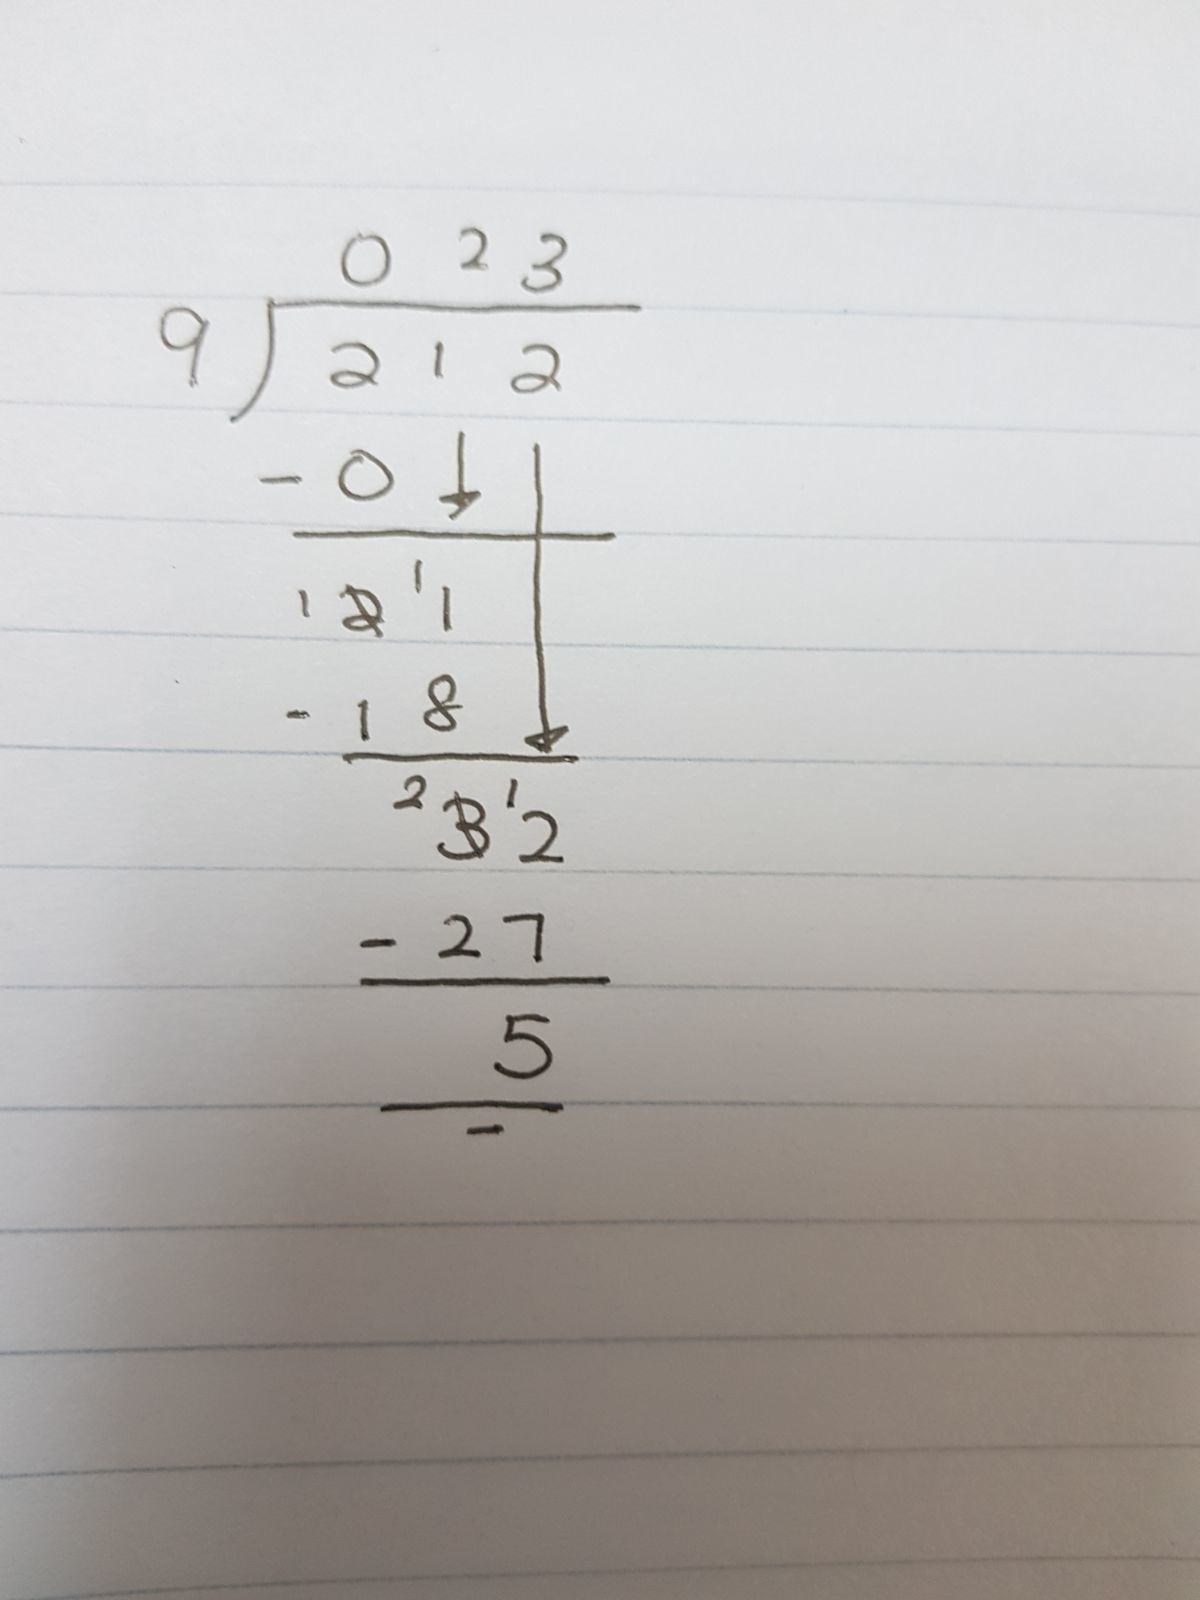 0 2 3
9 ) 2 1 2
- 0
1 2 1 1
- 1 8
2 3 1 2
- 2 7
5
-